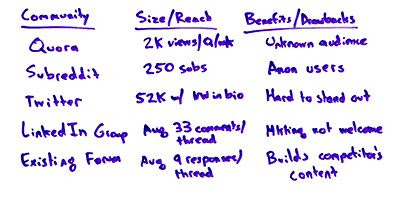 Community Size/Reach Benefits/Drawbacks
Quora 2K views/Q/wk Unknown audience
Subreddit 250 subs Anon users
Twitter 52K w/ KW in bio Hard to stand out
LinkedIn Group Avg 33 comments/
thread Mkting not welcome
Existing Forum Avg 9 responses/
thread Builds competitor's
content